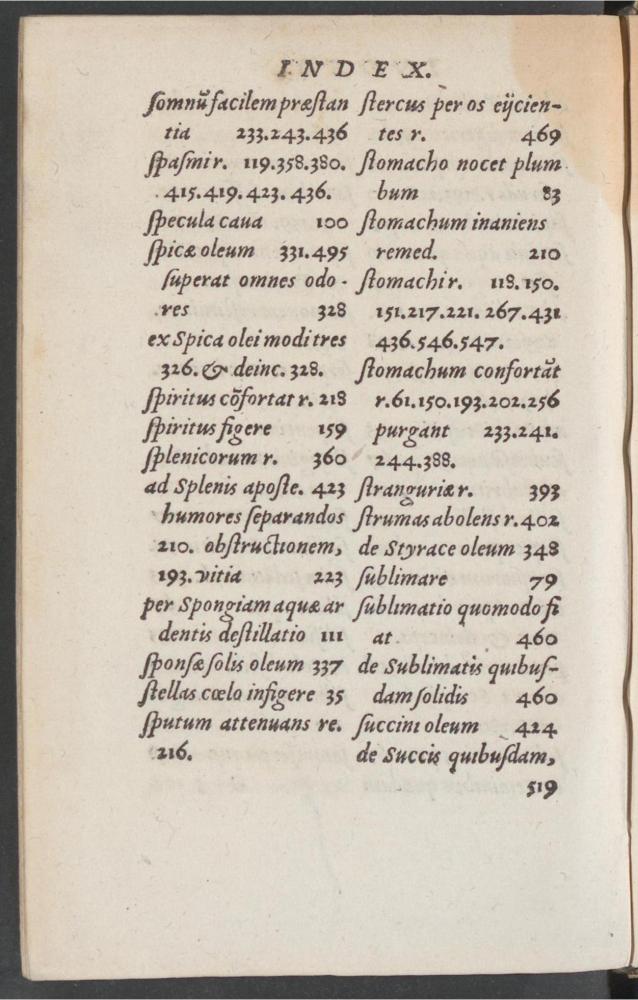 INDEX.
somnũ facilem præstan
tia 233.243.436
spasmi r. 119.358.380.
415.419.423.436.
specula caua 100
spicæ oleum 331.495
superat omnes odo-
res 328
ex Spica olei modi tres
326. & deinc. 328.
spiritus cõfortat r. 218
spiritus figere 159
splenicorum r. 360
ad Splenis aposte. 423
humores separandos
210. obstructionem,
193. vitia 223
per Spongiam aquæ ar
dentis destillatio 111
sponsæ solis oleum 337
stellas cœlo infigere 35
sputum attenuans re.
216.
stercus per os eijcien-
tes r. 469
stomacho nocet plum
bum 83
stomachum inaniens
remed. 210
stomachi r. 118.150.
151.217.221.267.431
436.546.547.
stomachum confortãt
r.61.150.193.202.256
purgant 233.241.
244.388.
stranguriæ r. 393
strumas abolens r. 402
de Styrace oleum 348
sublimare 79
sublimatio quomodo fi
at 460
de Sublimatis quibus-
dam solidis 460
succini oleum 424
de Succis quibusdam,
519